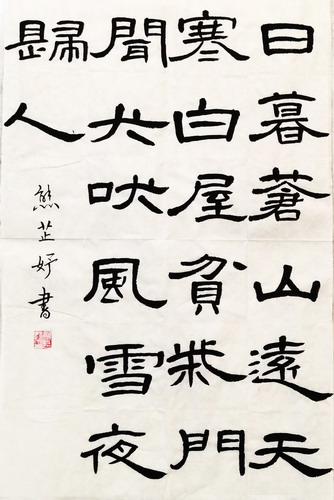 日暮蒼山遠天
寒白屋貧柴門
聞犬吠風雪夜
歸人
熊芷妤書